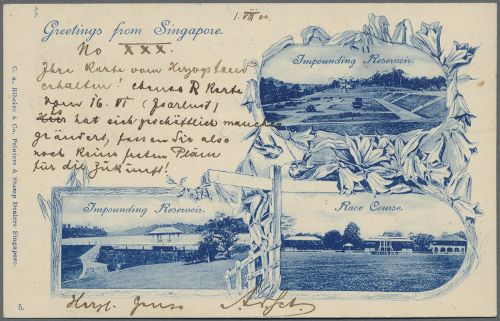 1. VIII 00.
Greetings from Singapore.
No XXX.
Impounding Reservoir.
Ihre Karte vom Herzogstand
erhalten! ebenso R Karte
vom 16. VI
hat sich geschäftlich manch
geändert, fassen Sie also
noch keine festen Pläne
für die Zukunft!
Impounding Reservoir.
Race Course.
Herzl. Gruss
C. A. Ribeiro & Co. Printers & Stamp Dealers Singapore.
5.